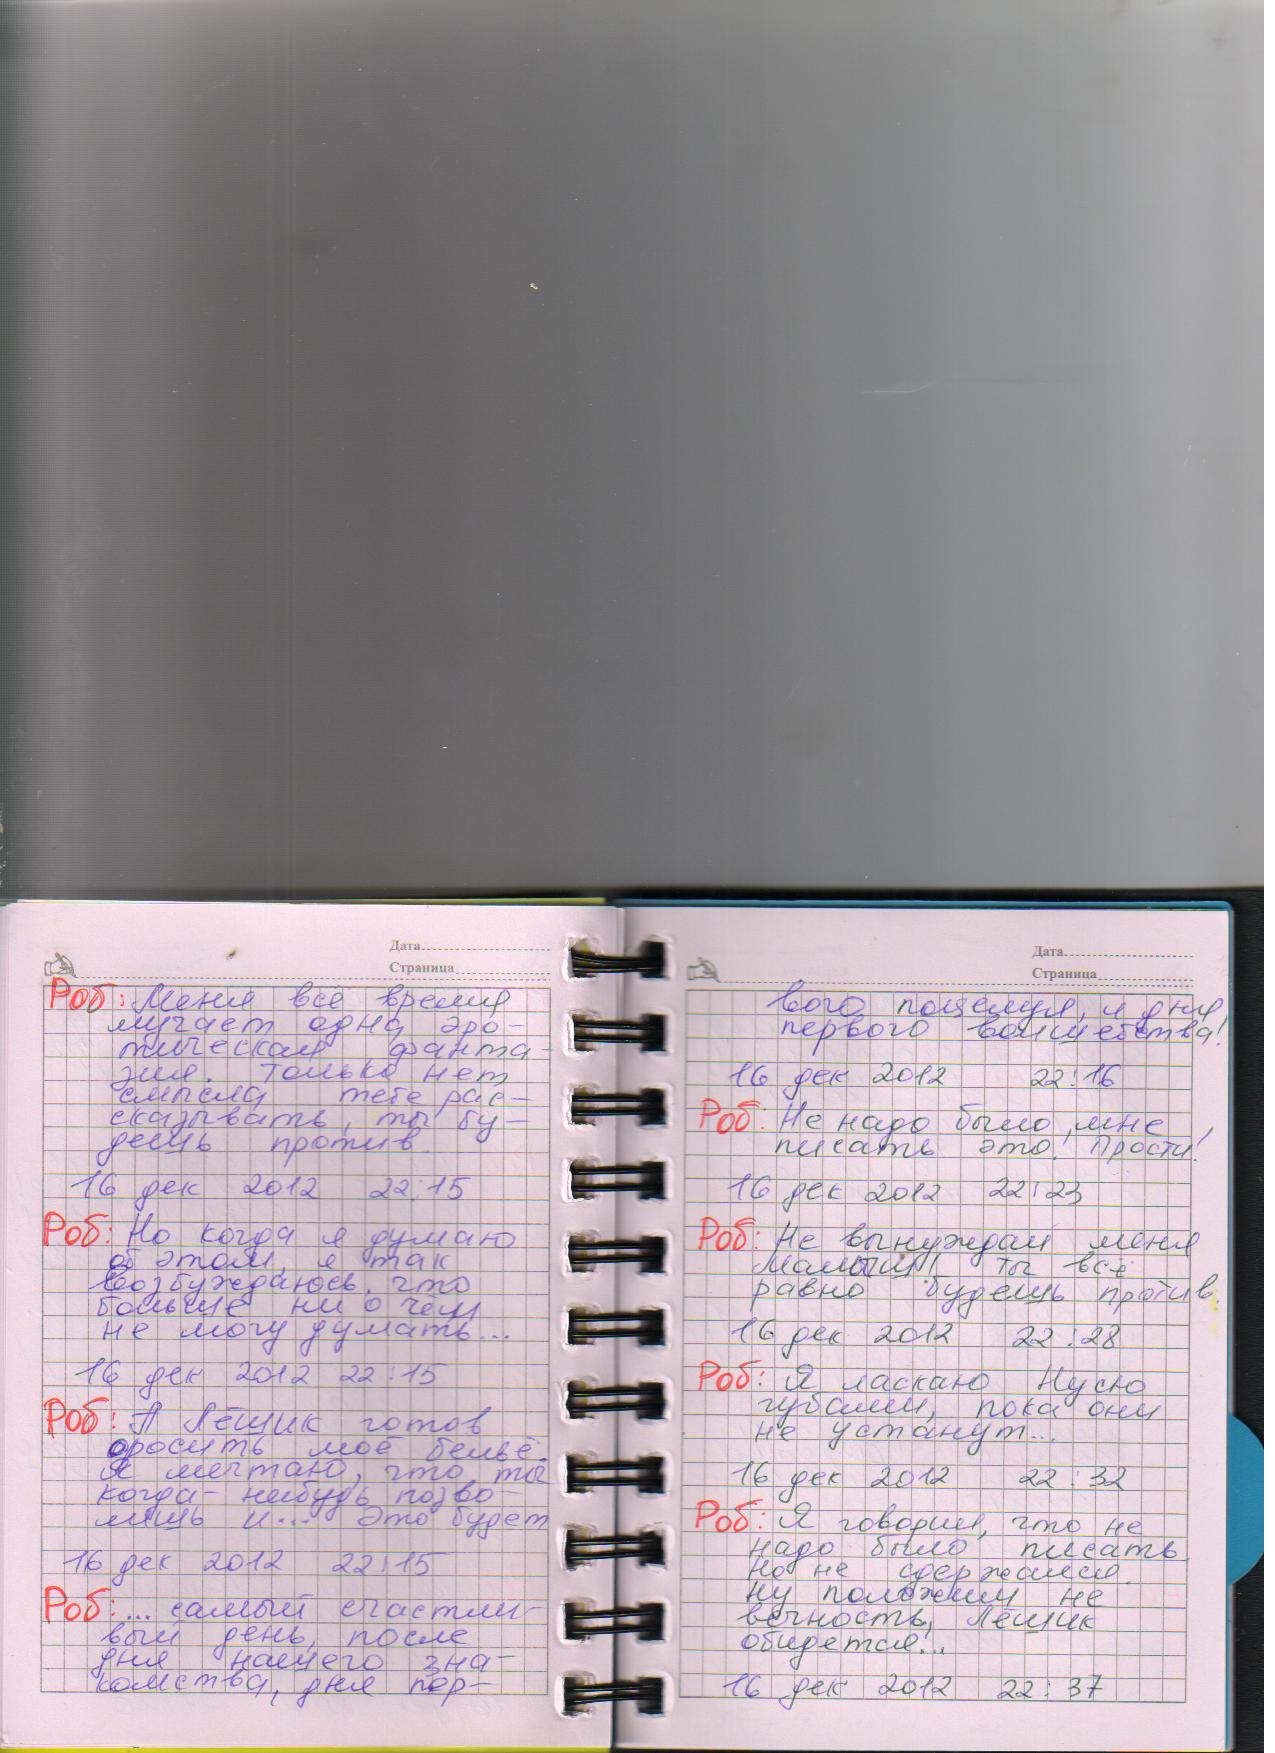 Дата
Страница
Роб: Меня всё время
мучает одна эро-
тическая фанта-
зия. Только нет
смысла тебе рас-
сказывать, ты бу-
дешь против.
16 дек 2012 22:15
Роб: Но когда я думаю
об этом, я так
возбуждаюсь, что
больше ни о чём
не могу думать...
16 дек 2012 22:15
Роб: А Лёщик готов
оросить моё бельё.
Я мечтаю, что ты
когда-нибудь позво-
лишь и... Это будет
16 дек 2012 22:15
Роб: ... самый счастли-
вый день, после
дня нашего зна-
комства, дня пер-
Дата
Страница
вого поцелуя, и дня
первого волшебства!
16 дек 2012 22:16
Роб: Не надо было мне
писать это! Прости!
16 дек 2012 22:23
Роб: Не вынуждай меня
малыш! Ты всё
равно будешь против.
16 дек 2012 22:28
Роб: Я ласкаю Нусю
губами, пока они
не устанут...
16 дек 2012 22:32
Роб: Я говорил, что не
надо было писать
но не сдержался.
ну положим не
вечность, Лёщик
обидется!..
16 дек 2012 22:37